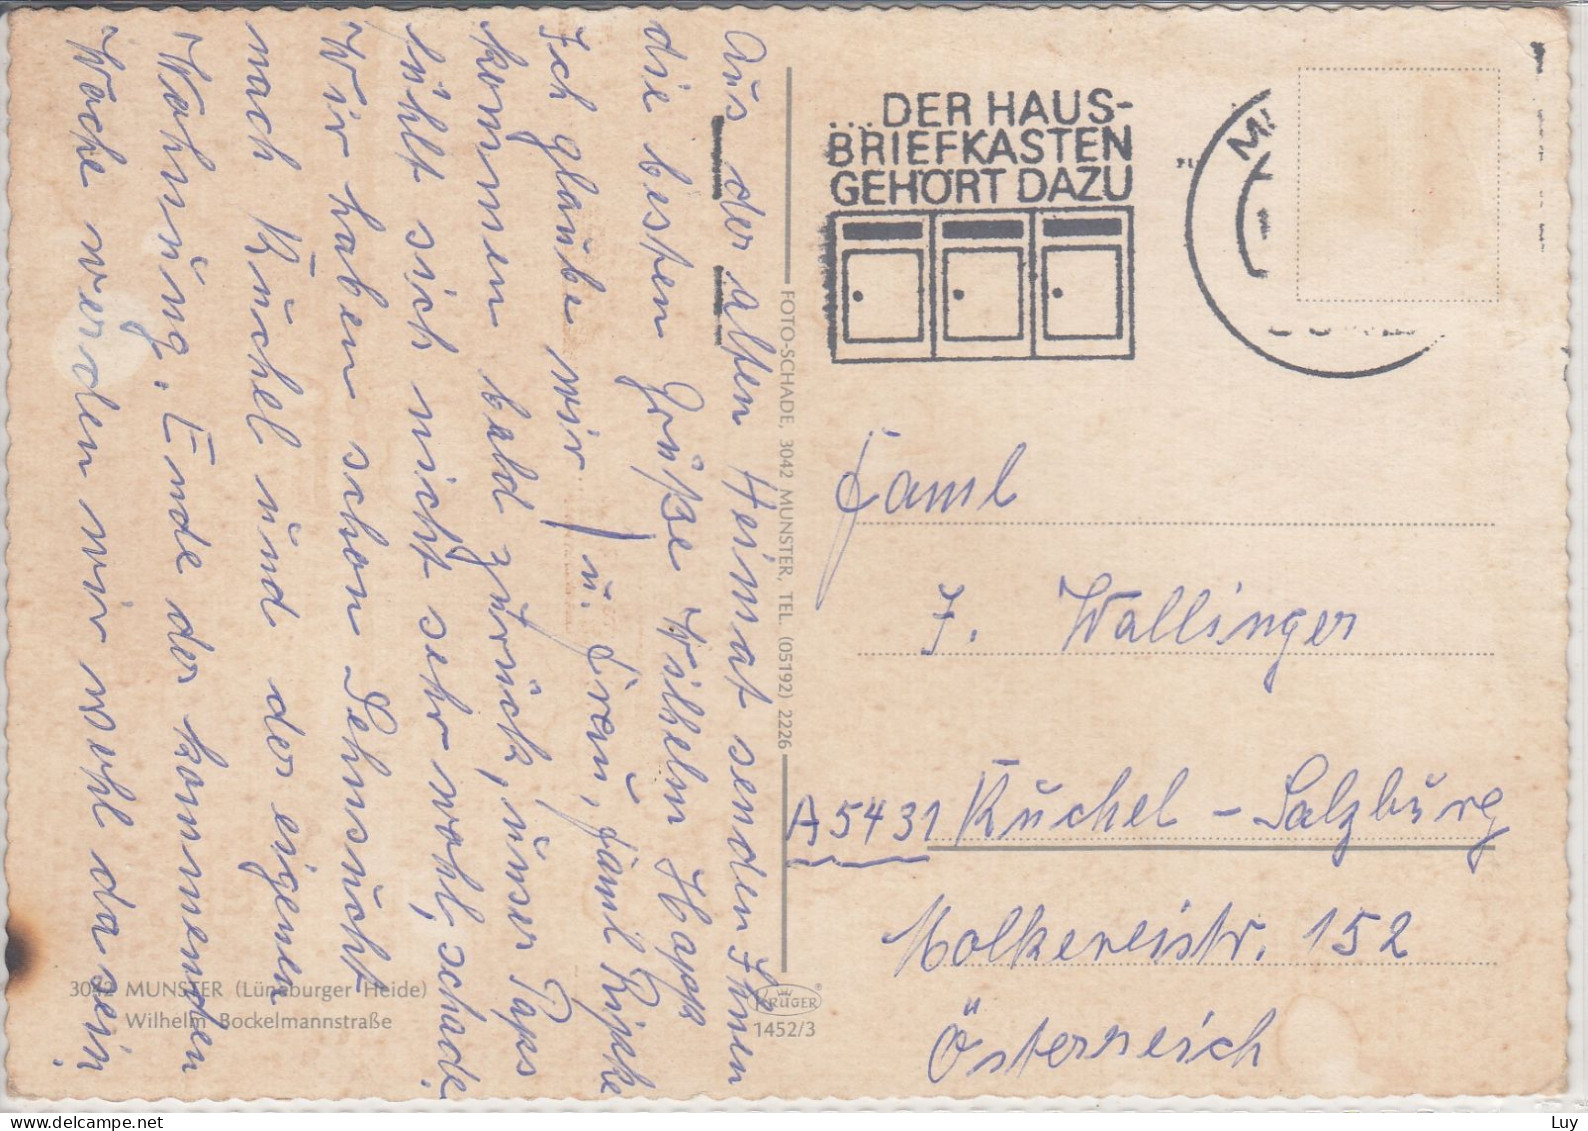 Aus der alten Heimat senden Ihnen
die besten Grüße Wilhelm Happ
u. Frau, Famil Ripke
Ich glaube wir
kommen bald zurück, unser Paps
fühlt sich nicht sehr wohl, schade.
Wir haben schon Sehnsucht
nach Kuchel und der eigenen
Wohnung. Ende der kommenden
Woche werden wir wohl da sein.
3042 MUNSTER (Lüneburger Heide)
Wilhelm Bockelmannstraße
FOTO-SCHADE, 3042 MUNSTER, TEL. (05192) 2226
KRÜGER
1452/3
...DER HAUS-
BRIEFKASTEN
GEHÖRT DAZU
Faml
F. Wallinger
A 5431 Kuchel - Salzburg
Molkereistr. 152
Österreich
www.delcampe.net
Luy